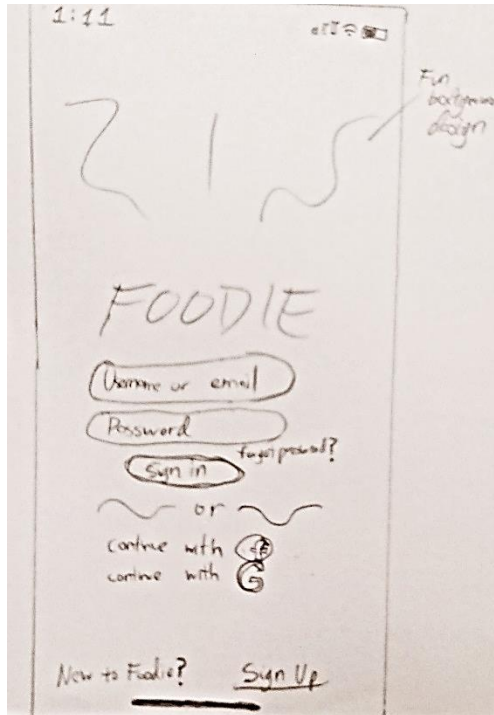 1:11
Fun
background
design
FOODIE
Username or email
Password
forgot password?
sign in
or
continue with f
continue with G
New to Foodie? Sign Up